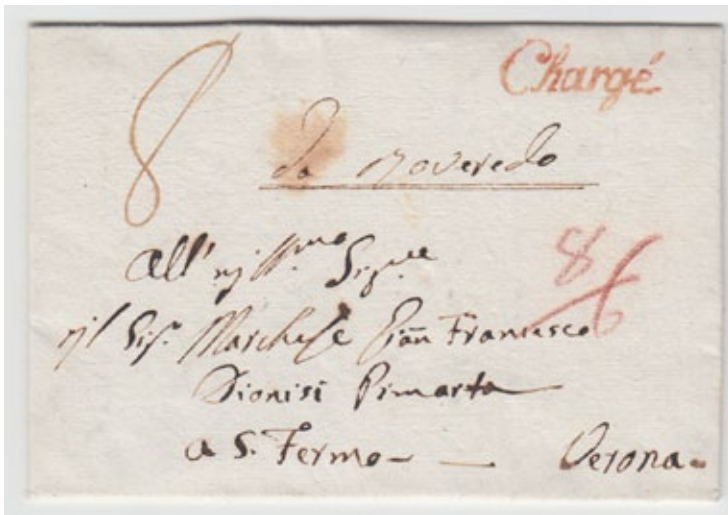 8
Chargé
da Roveredo
All' Ill.mo Sig.re
il Sig. Marchese Gian Francesco
Dionisi Pimarta
a S. Fermo - — Verona.
8/6